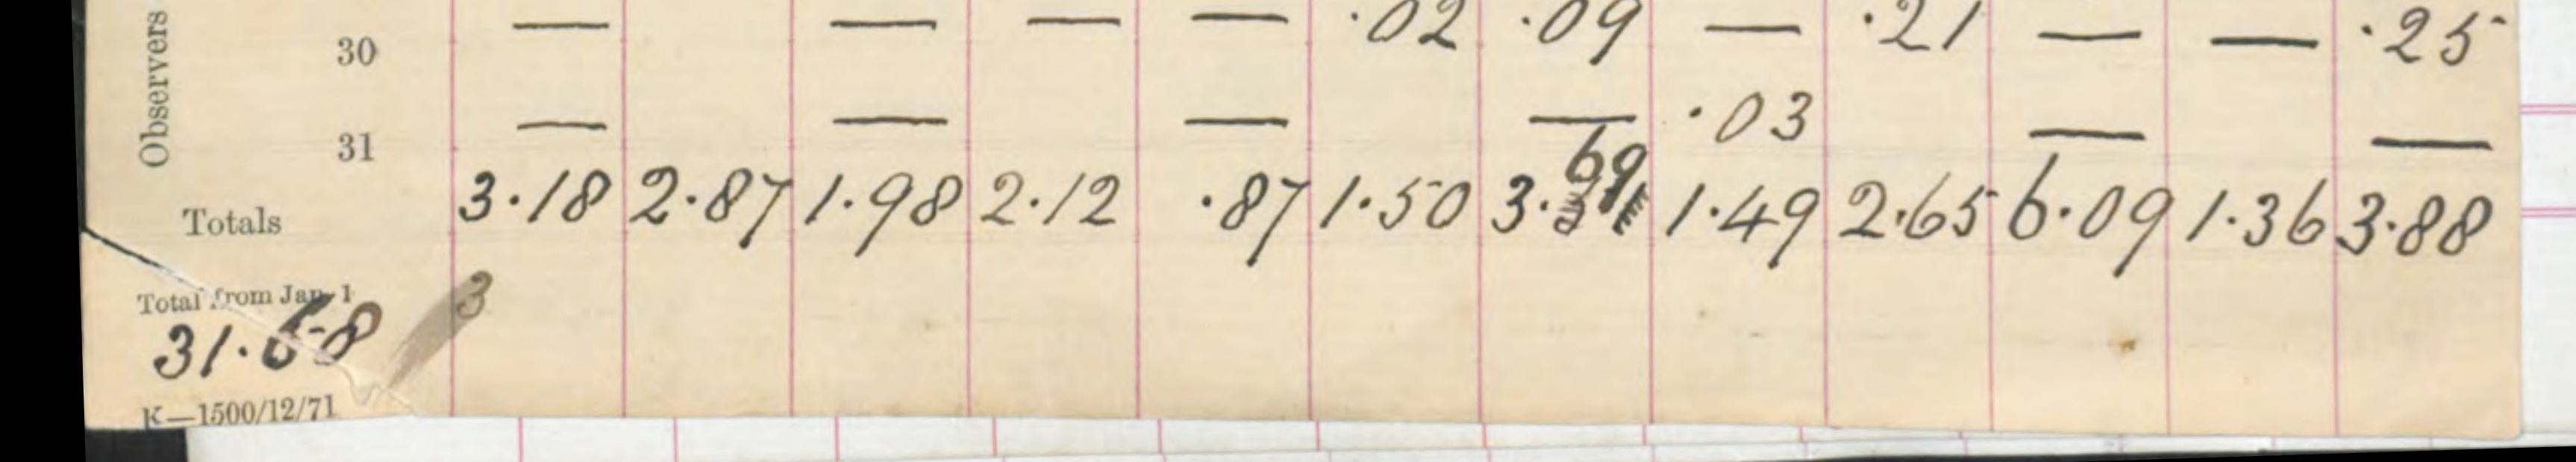 Observers
30 — — — — .02 .09 — .21 — — .25
31 — — — — .03 — —
Totals 3.18 2.87 1.98 2.12 .87 1.50 3.69 1.49 2.65 6.09 1.36 3.88
Total from Jan. 1 3
31.68
K—1500/12/71